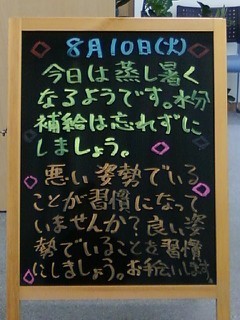 8月10日(火)
今日は蒸し暑く
なるようです。水分
補給は忘れずに
しましょう。
悪い姿勢でいる
ことが習慣になって
いませんか？良い姿
勢でいることを習慣
にしましょう。お手伝いします